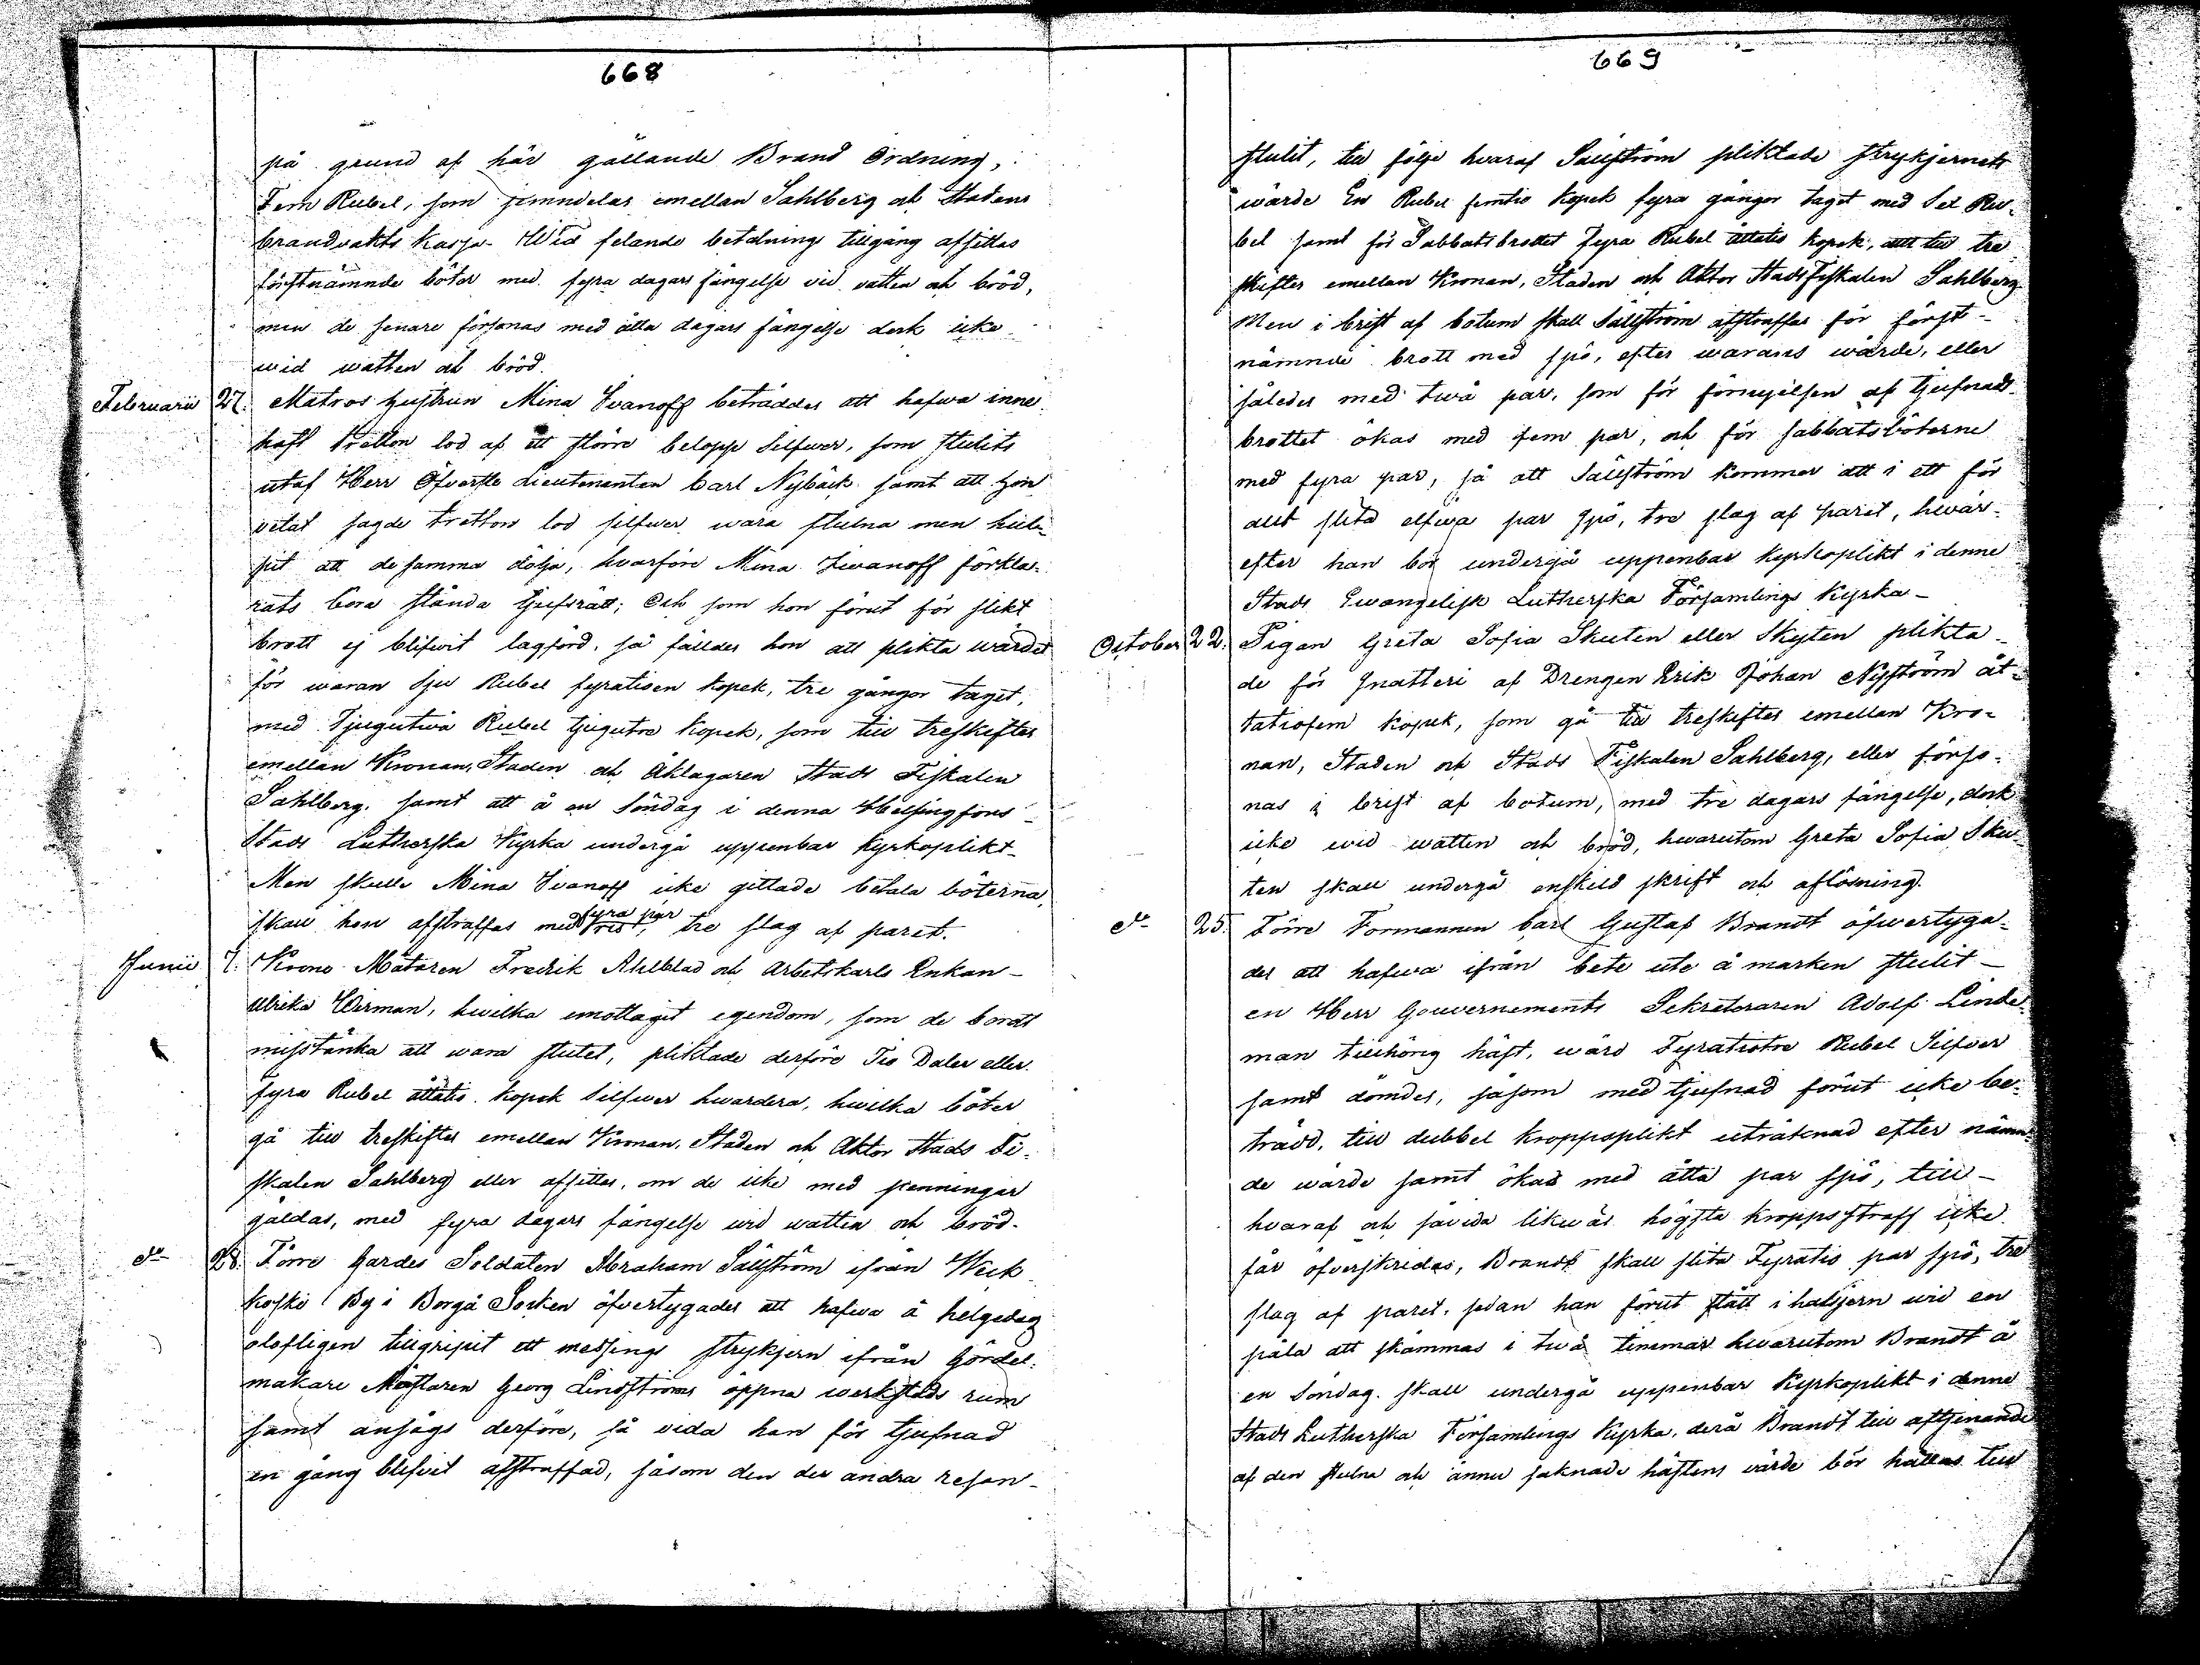 668
på grund af här gällande Brand Ordning,
Fem Rubel, som jemndelas emellan Sahlberg och Stadens
brandvakts kassa. Wid felande betalnings tillgång afsittas
förstnämnde böter med fyra dagars fängelse vid vatten och bröd,
men de senare försonas med åtta dagars fängelse dock icke
wid watten och bröd.
Februarii 27. Matros hustrun Mina Ivanoff beträddes att hafwa inne
haft tretton lod af ett större belopp Silfwer, som stulits
utaf Herr Öfverste Lieutenanten Carl Nybäck samt att hon
vetat sagde tretton lod silfwer wara stulna men hul-
pit att desamma dölja, hvarföre Mina Iwanoff förkla-
rats böra stånda tjufsrätt; Och som hon förut för slikt
brott ej blifwit lagförd, så fälldes hon att plikta wärdet
för waran Sju Rubel fyratisex kopek, tre gånger taget,
med Tjugutwå Rubel tjugutre kopek, som till treskiftes
emellan Kronan, Staden och Åklagaren Stads Fiskalen
Sahlberg, samt att å en Söndag i denna Helsingfors
Stads Lutherska Kyrka undergå uppenbar kyrkoplikt.
Men skulle Mina Ivanoff icke gittade betala böterna,
skall hon afstraffas med fyra par ris, tre slag af paret.
Junii 7. Krono Mätaren Fredrik Ahlblad och Arbetskarls Enkan
Ulrika Wirman, hwilka emottagit egendom, som de bordt
misstänka att wara stulet, pliktade derföre Tio Daler eller
fyra Rubel åttatio kopek Silfwer hwardera, hwilka böter
gå till treskiftes emellan Kronan, Staden och Aktor Stads Fi-
skalen Sahlberg eller afsittes, om de icke med penningar
gäldas, med fyra dagars fängelse wid watten och bröd.
do 28. Förre Gardes Soldaten Abraham Sällström ifrån Weck
koski By i Borgå Socken öfvertygades att hafwa å helgedag
olofligen tillgripit ett messings strykjern ifrån Gördel-
makare Mästaren Georg Lindströms öppna werkstads rum
samt ansågs derföre, så vida han för tjufnad
en gång blifvit afstraffad, såsom den der andra resan
669
stulit, till följe hvaraf Sällström pliktade strykjernets
wärde En Rubel femtio kopek fyra gånger taget med Sex Ru-
bel samt för Sabbatsbrottet Fyra Rubel åttatio kopek, allt till tre
skiftes emellan Kronan, Staden och Aktor StadsFiskalen Sahlberg
Men i brist af botum skall Sällström afstraffas för först-
nämnde brott med spö, efter warans wärde, eller
således med twå par, som för förnyelsen af tjufnads
brottet ökas med fem par, och för sabbatsböterne
med fyra par, så att Sällström kommer att i ett för
allt slita elfwa par spö, tre slag af paret, hwar-
efter han bör undergå uppenbar kyrkoplikt i denne
Stads Ewangelisk Lutherska Församlings Kyrka
October 22. Pigan Greta Sofia Skuten eller Skyten plikta
de för snatteri af Drengen Erik Johan Nyström åt-
tatiofem kopek, som gå till treskiftes emellan Kro-
nan, Staden och Stads Fiskalen Sahlberg, eller förso-
nas i brist af botum, med tre dagars fängelse, dock
icke wid watten och bröd, hwarutom Greta Sofia Sku-
ten skall undergå enskild skrift och aflösning.
do 25. Förre Formannen Carl Gustaf Brandt öfvertyga-
des att hafwa ifrån bete ute å marken stulit
en Herr Gouvernements Sekreteraren Adolf Linde-
man tillhörig häst, wärd Fyratiotre Rubel Silfver
samt dömdes, såsom med tjufnad förut icke be-
trädd, till dubbel kroppsplikt uträknad efter nämn-
de wärde samt ökad med åtta par spö, till
hvaraf och såvida likwäl högsta kroppsstraff icke
får öfverskridas, Brandt skall slita Fyratio par spö, tre
slag af paret, sedan han förut stått i halsjern wid en
påla att skämmas i twå timmar hwarutom Brandt å
en Söndag skall undergå uppenbar Kyrkoplikt i denne
Stads Lutherska Församlings Kyrka, derå Brandt till aftjenande
af den stulna och ännu saknade hästens wärde bör hållas till